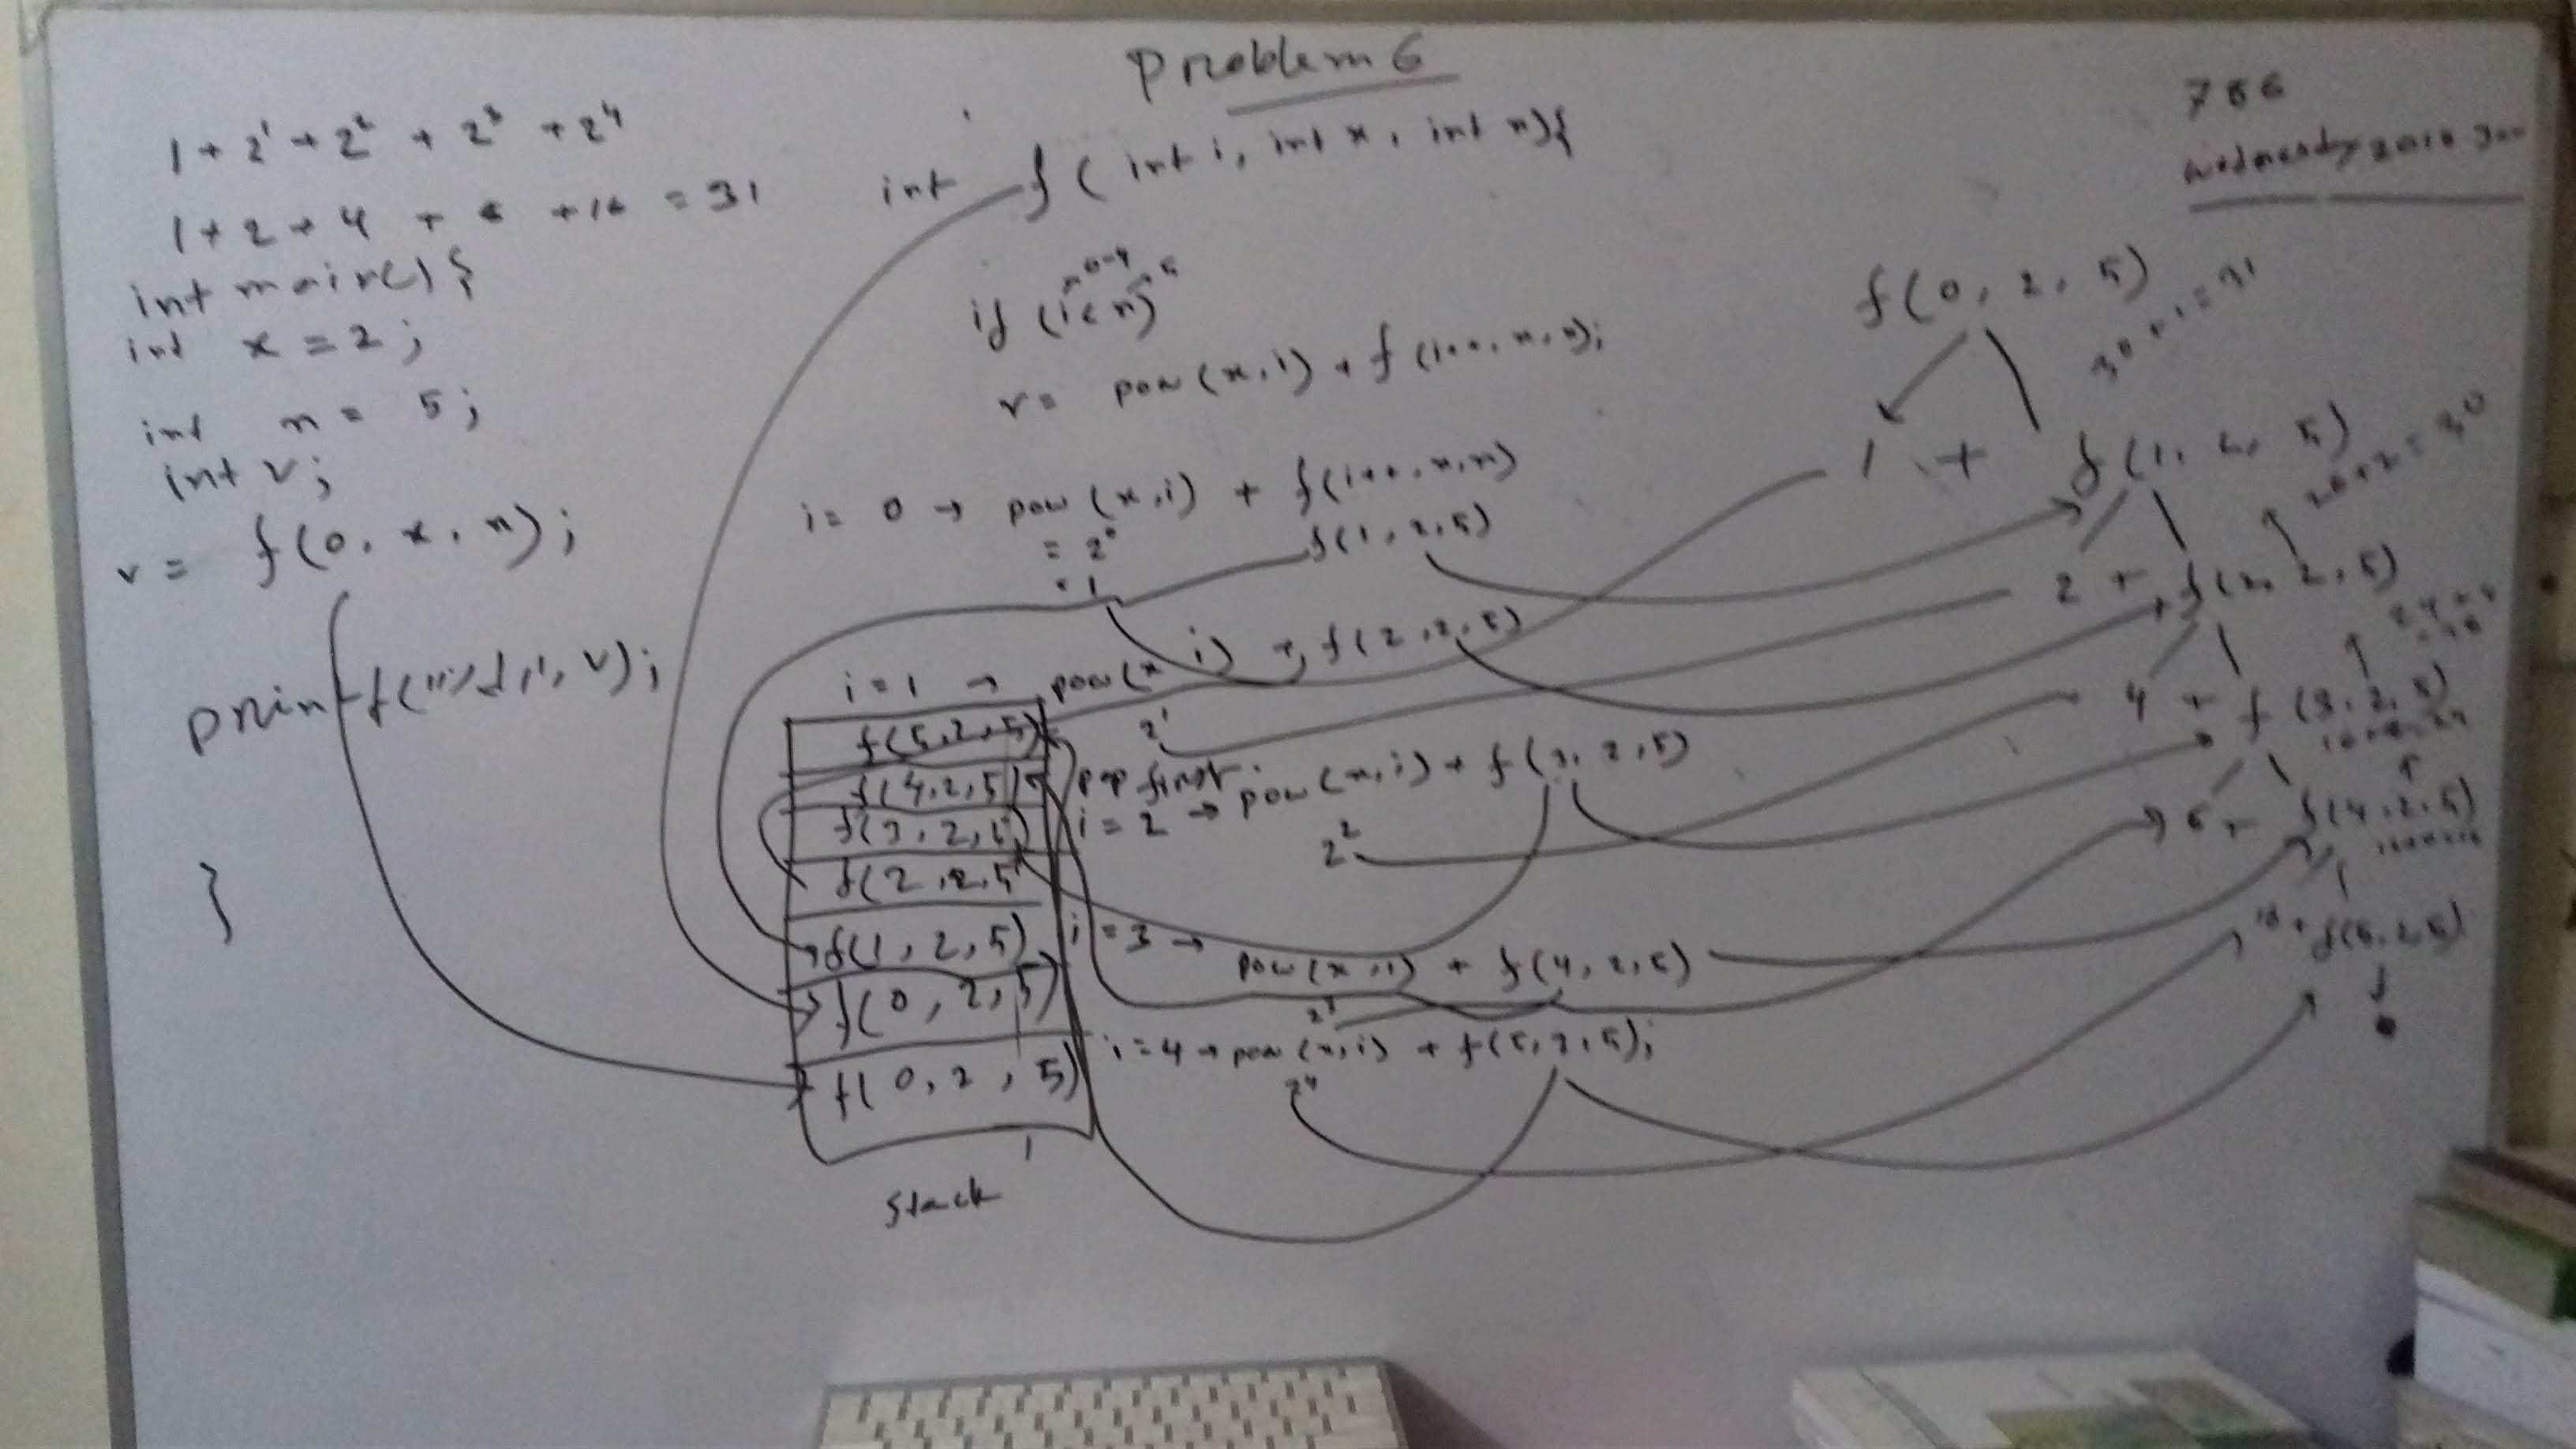 Problem 6
786
1 + 2¹ + 2² + 2³ + 2⁴
1 + 2 + 4 + 8 + 16 = 31
int main() {
int x = 2;
int n = 5;
int v;
v = f(0, x, n);
printf("%d", v);
}
int f( int i, int x, int n){
0-4 5
if (i < n)
v = pow(x, i) + f(i++, x, n);
i = 0 → pow(x, i) + f(i++, x, n)
= 2⁰ f(1, 2, 5)
= 1
i = 1 → pow(x i) + f(2, 2, 5)
2¹
pop first
i = 2 → pow(x, i) + f(3, 2, 5)
2²
i = 3 → pow(x, i) + f(4, 2, 5)
2³
i = 4 → pow(x, i) + f(5, 2, 5);
2⁴
f(5, 2, 5)
f(4, 2, 5)
f(3, 2, 5)
f(2, 2, 5
f(1, 2, 5)
f(0, 2, 5)
f(0, 2, 5)
Stack
f(0, 2, 5)
30 + 1 = 31
1 + f(1, 2, 5)
28 + 2 = 30
2 + f(2, 2, 5)
24 + 4
= 28
4 + f(3, 2, 5)
16 + 8 = 24
8 + f(4, 2, 5)
16 + f(5, 2, 5)